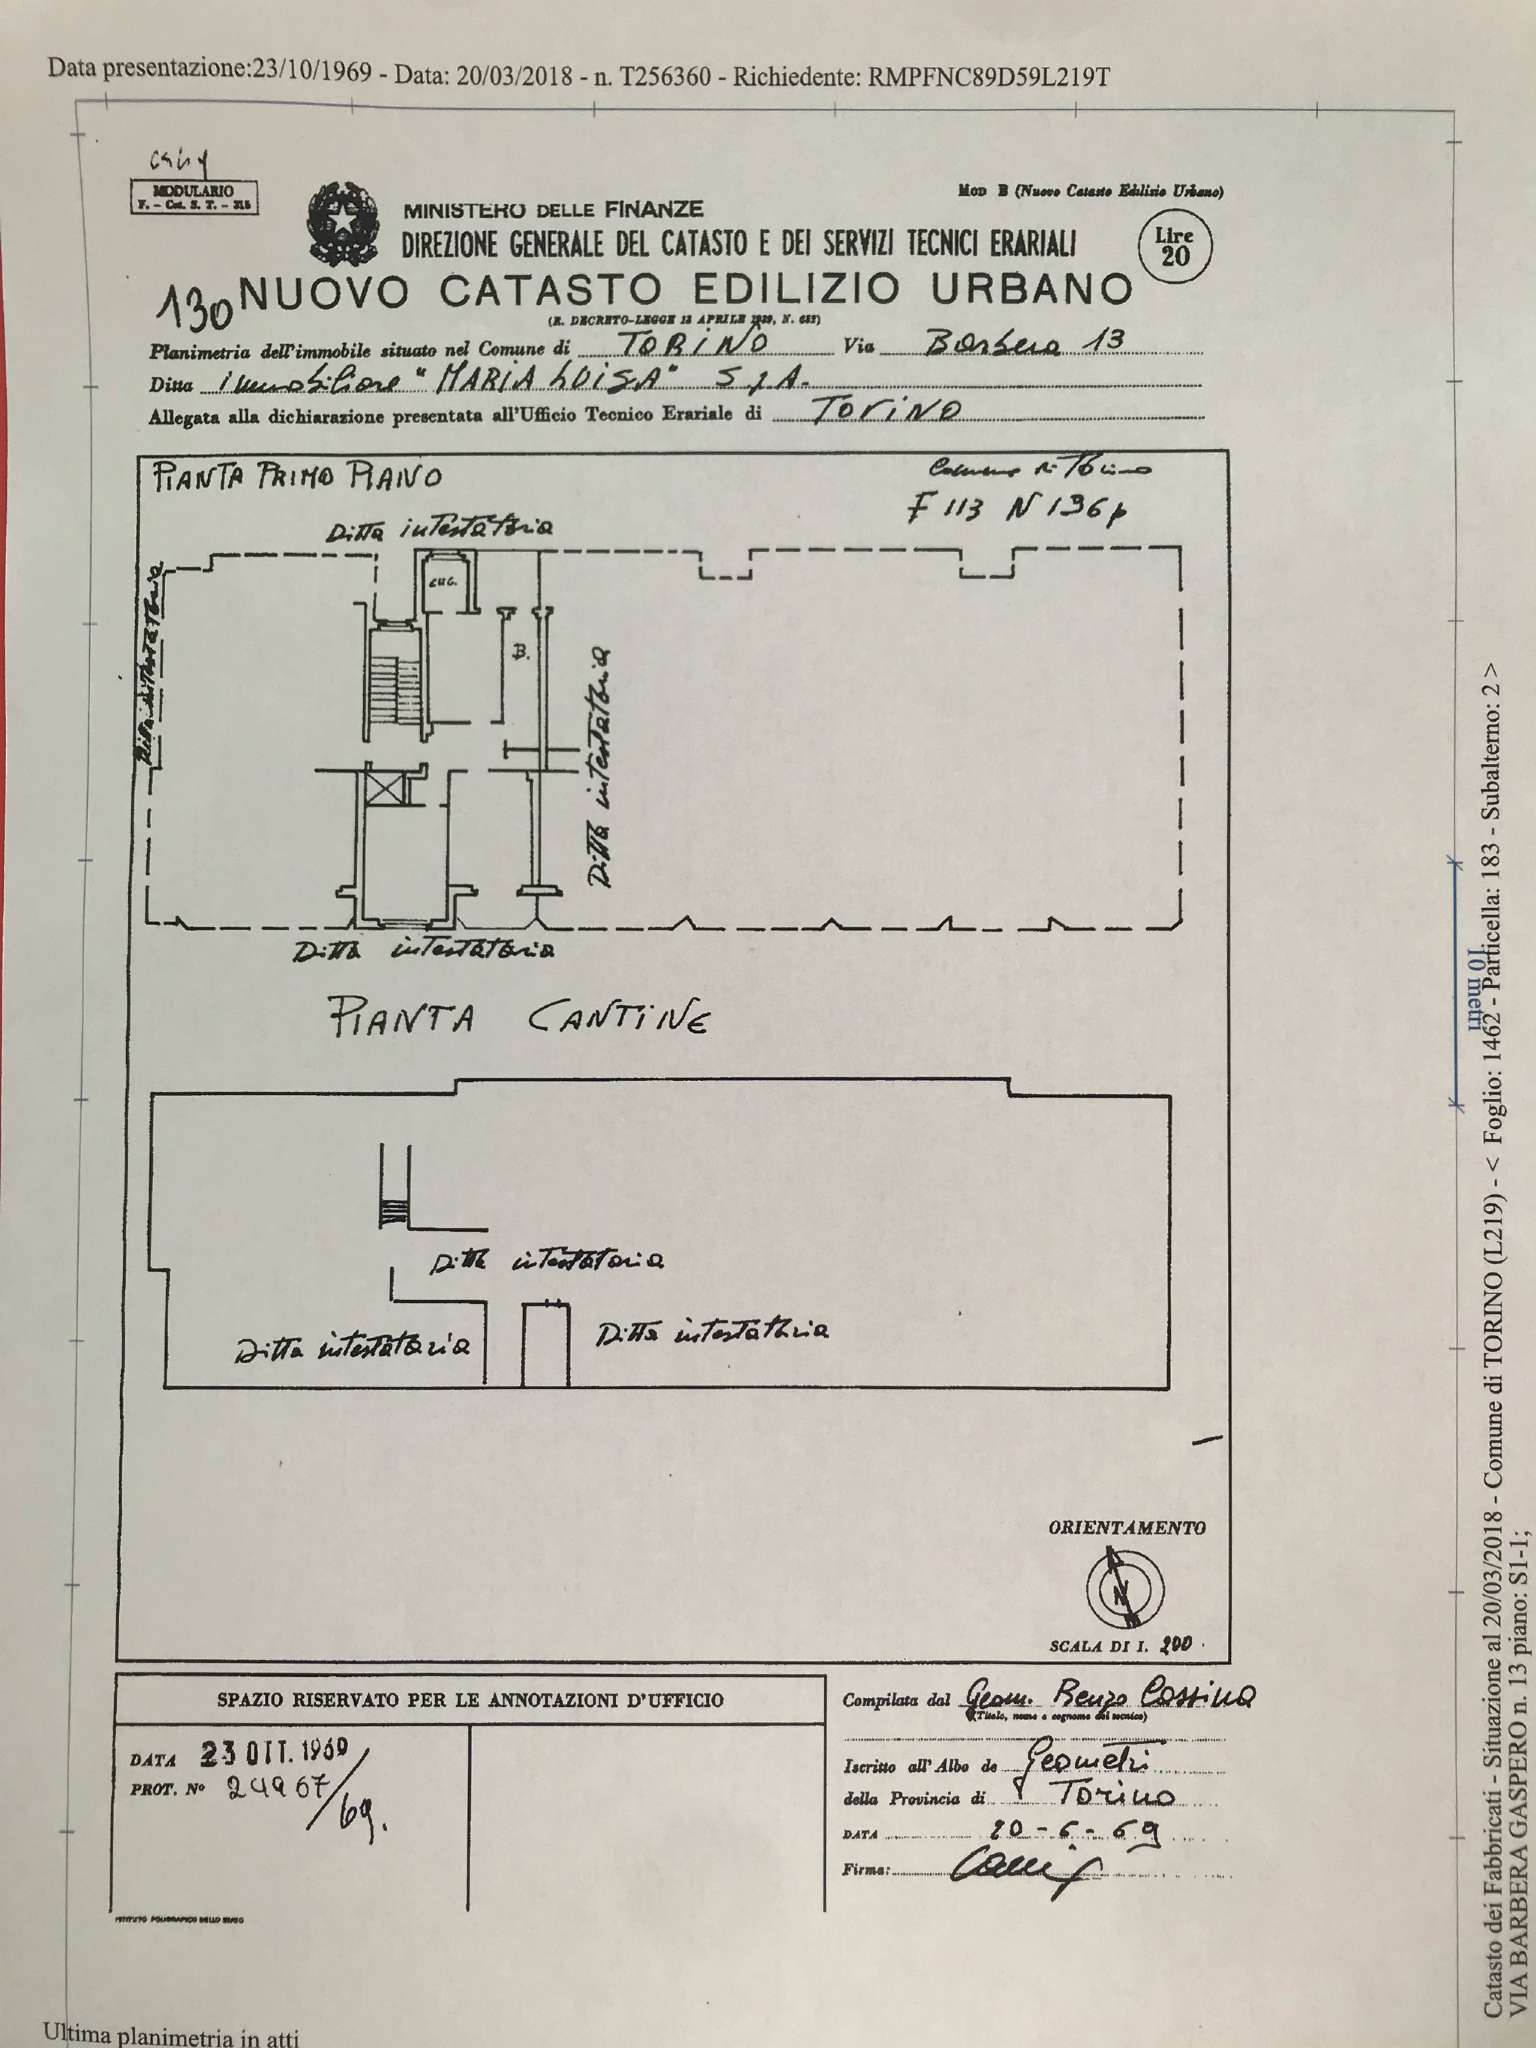 Data presentazione:23/10/1969 - Data: 20/03/2018 - n. T256360 - Richiedente: RMPFNC89D59L219T
MODULARIO
F. - Cat. S. T. - 315
MOD B (Nuovo Catasto Edilizio Urbano)
MINISTERO DELLE FINANZE
DIREZIONE GENERALE DEL CATASTO E DEI SERVIZI TECNICI ERARIALI
Lire
20
130 NUOVO CATASTO EDILIZIO URBANO
(R. DECRETO-LEGGE 13 APRILE 1939, N. 652)
Planimetria dell'immobile situato nel Comune di TORINO Via Barbera 13
Ditta immobiliare "MARIA LUISA" S.p.A.
Allegata alla dichiarazione presentata all'Ufficio Tecnico Erariale di TORINO
PIANTA PRIMO PIANO
Comune di Torino
F 113 N 136p
Ditta intestataria
Ditta intestataria
CUC.
B.
Ditta intestataria
Ditta intestataria
PIANTA CANTINE
Ditta intestataria
Ditta intestataria
Ditta intestataria
ORIENTAMENTO
N
SCALA DI 1. 200
SPAZIO RISERVATO PER LE ANNOTAZIONI D'UFFICIO
DATA 23 OTT. 1969
PROT. N° 24967/69.
Compilata dal Geom. Renzo Cassina
(Titolo, nome e cognome del tecnico)
Iscritto all'Albo de Geometri
della Provincia di Torino
DATA 20-6-69
Firma:
ISTITUTO POLIGRAFICO DELLO STATO
Ultima planimetria in atti
10 metri
Catasto dei Fabbricati - Situazione al 20/03/2018 - Comune di TORINO (L219) - < Foglio: 1462 - Particella: 183 - Subalterno: 2 >
VIA BARBERA GASPERO n. 13 piano: S1-1;